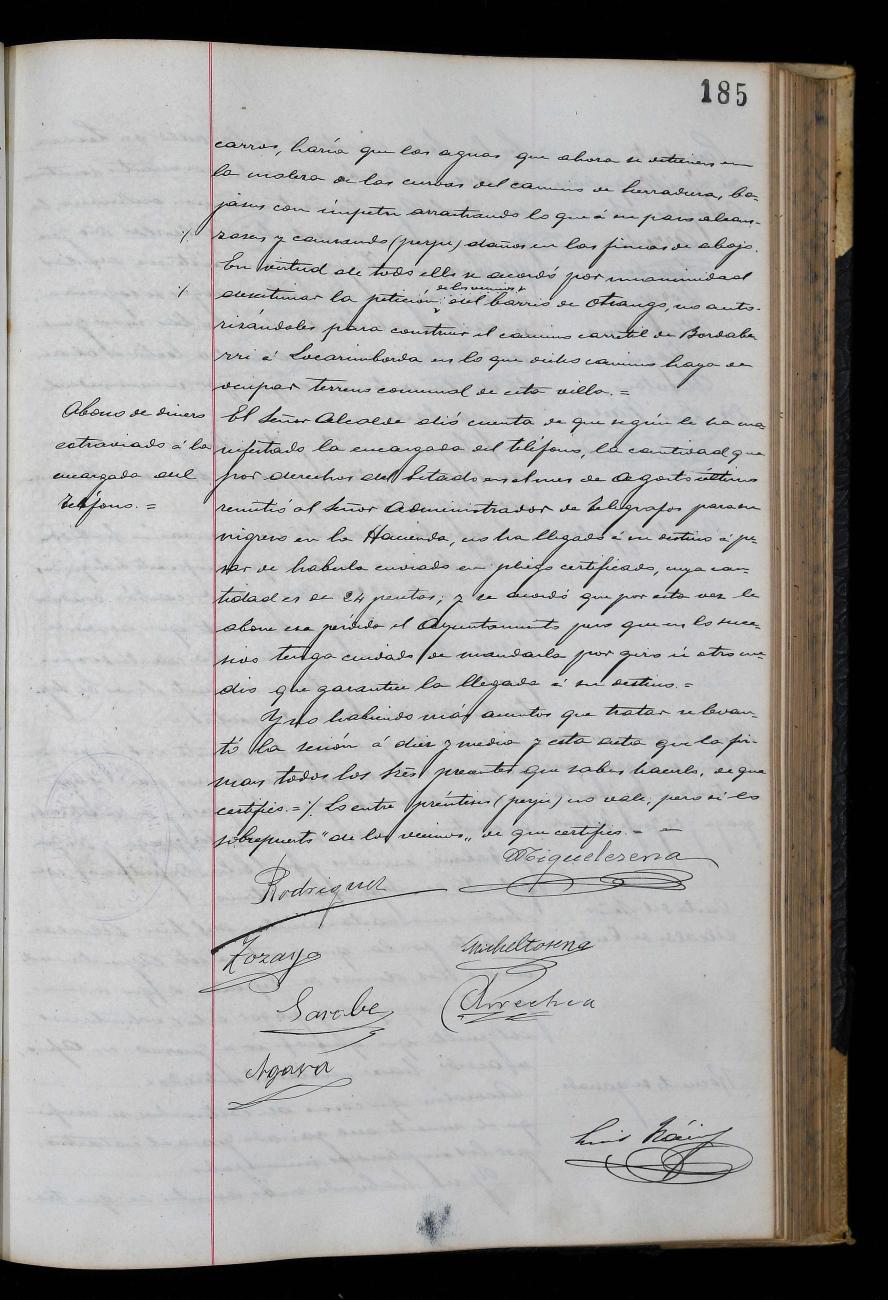 185
carros, haría que las aguas que ahora se detienen en
la maleza de las curvas del camino de herradura, ba-
jasen con ímpetu arrastrando lo que á su paso alcan-
⁒ zasen y causando (perju) daños en las fincas de abajo.
En virtud de todo ello se acordó por unanimidad
de los vecinos
⁒ desestimar la petición del barrio de Otsango, no auto-
rizándoles para construir el camino carretil de Bordabe
rri á Locarimborda en lo que dicho camino haya de
ocupar terreno comunal de esta villa.=
Abono de dinero
extraviado á la
encargada del
teléfono.=
El Señor Alcalde dió cuenta de que según le ha ma
nifestado la encargada del teléfono, la cantidad que
por derechos del Estado en el mes de Agosto último
remitió al Señor Administrador de Telégrafos para su
ingreso en la Hacienda, no ha llegado á su destino á pe-
sar de haberla enviado en pliego certificado, cuya can-
tidad es de 24 pesetas; y se acordó que por esta vez le
abone esa pérdida el Ayuntamiento pero que en lo suce-
sivo tenga cuidado de mandarla por giro ú otro me-
dio que garantice la llegada á su destino.=
Y no habiendo más asuntos que tratar se levan-
tó la sesión á diez y media y esta acta que la fir-
man todos los Sres presentes que saben hacerlo, de que
certifico.=⁒ Lo entre paréntesis (perju) no vale, pero si lo
sobrepuesto "de los vecinos" de que certifico.= =
Miguelezena
Rodriguez
Zozaya
Micheltorena
Sarobe
Arrechea
Agara
Luis Sáinz